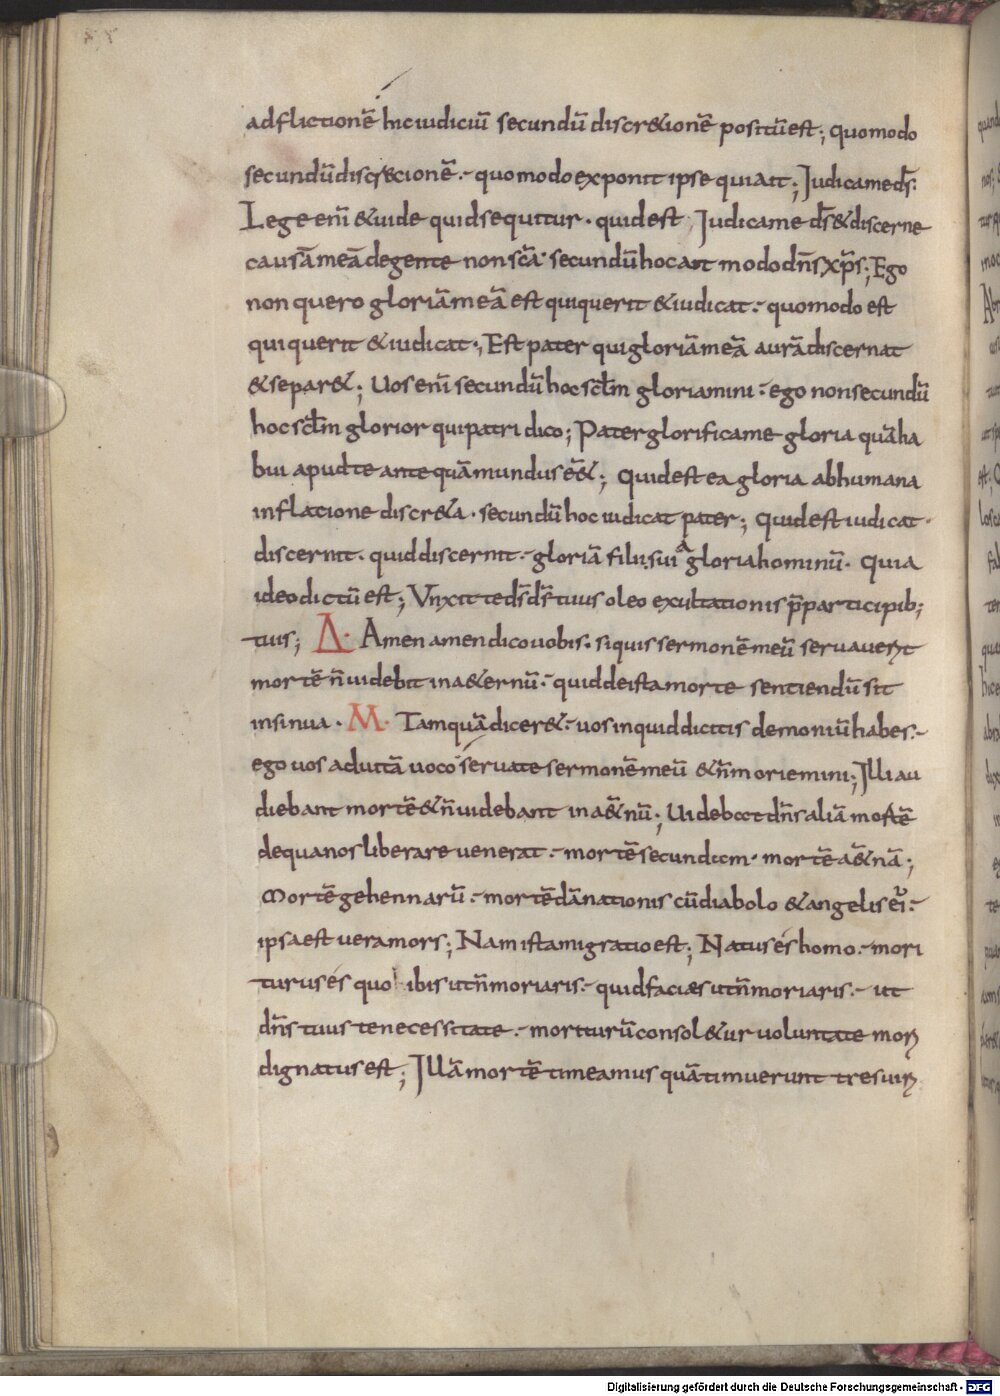 adflictionē hic iudiciū secundū discr&ionē positū est; quomodo
secundū discr&cionē. quomodo exponit ipse qui ait; Judica me d̄s.
Lege eni̅ & uide quid sequitur. quid est Judica me d̄s & discerne
causā meā de gente non sc̄a. secundū hoc ait modo dn̄s xp̄s; Ego
non quero gloriā meā est qui querit & iudicat. quomodo est
qui querit & iudicat; Est pater qui gloriā meā a urā discernat
& separ&; Uos eni̅ secundū hoc sc̄lm gloriamini. ego non secundū
hoc sc̄lm glorior qui patri dico; Pater glorifica me gloria quā ha
bui apud te ante quā mundus ēē&; Quid est ea gloria ab humana
inflatione discr&a. secundū hoc iudicat pater; Quid est iudicat.
discernit. quid discernit. gloriā filii sui a gloria hominū. Quia
ideo dictū est; Unxit te d̄s d̄s tuus oleo exultationis p̄ participib;
tuis; Δ. Amen amen dico uobis. si quis sermonē meū seruauerit
mortē n̄ uidebit in a&ernū. quid de ista morte sentiendū sit
insinua. M. Tamquā dicer&. uos inquid dicitis demoniū habes.
ego uos ad uitā uoco seruate sermonē meū & n̄ moriemini; Illi au
diebant mortē & n̄ uidebant in a&nū; Uidebat dn̄s aliā mortē
de qua nos liberare uenerat. mortē secundam. mortē a&nā;
Mortē gehennarū. mortē dānationis cū diabolo & angelis ei.
ipsa est uera mors; Nam ista migratio est; Natus es homo. mori
turus es quo ibis ut n̄ moriaris. quid facias ut n̄ moriaris. ut
dn̄s tuus te necessitate. moriturū consol&ur uoluntate mori
dignatus est; Illā mortē timeamus quā timuerunt tres uiri
Digitalisierung gefördert durch die Deutsche Forschungsgemeinschaft - DFG